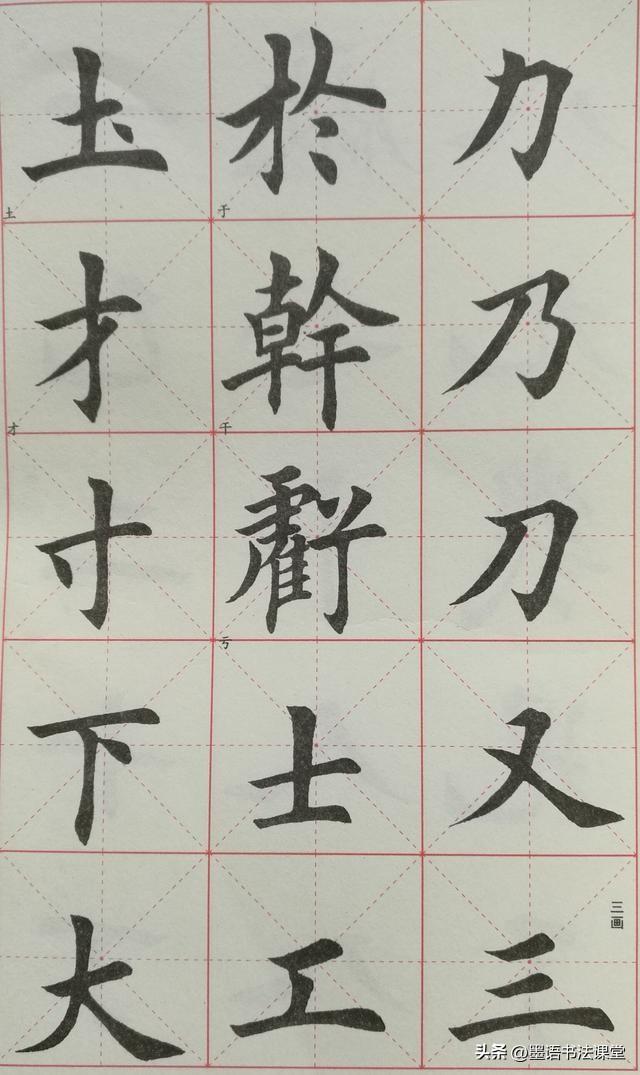 力
乃
刀
又
三画
三
於
于
幹
干
虧
亏
士
工
圡
土
才
才
寸
下
大
头条 @墨语书法课堂